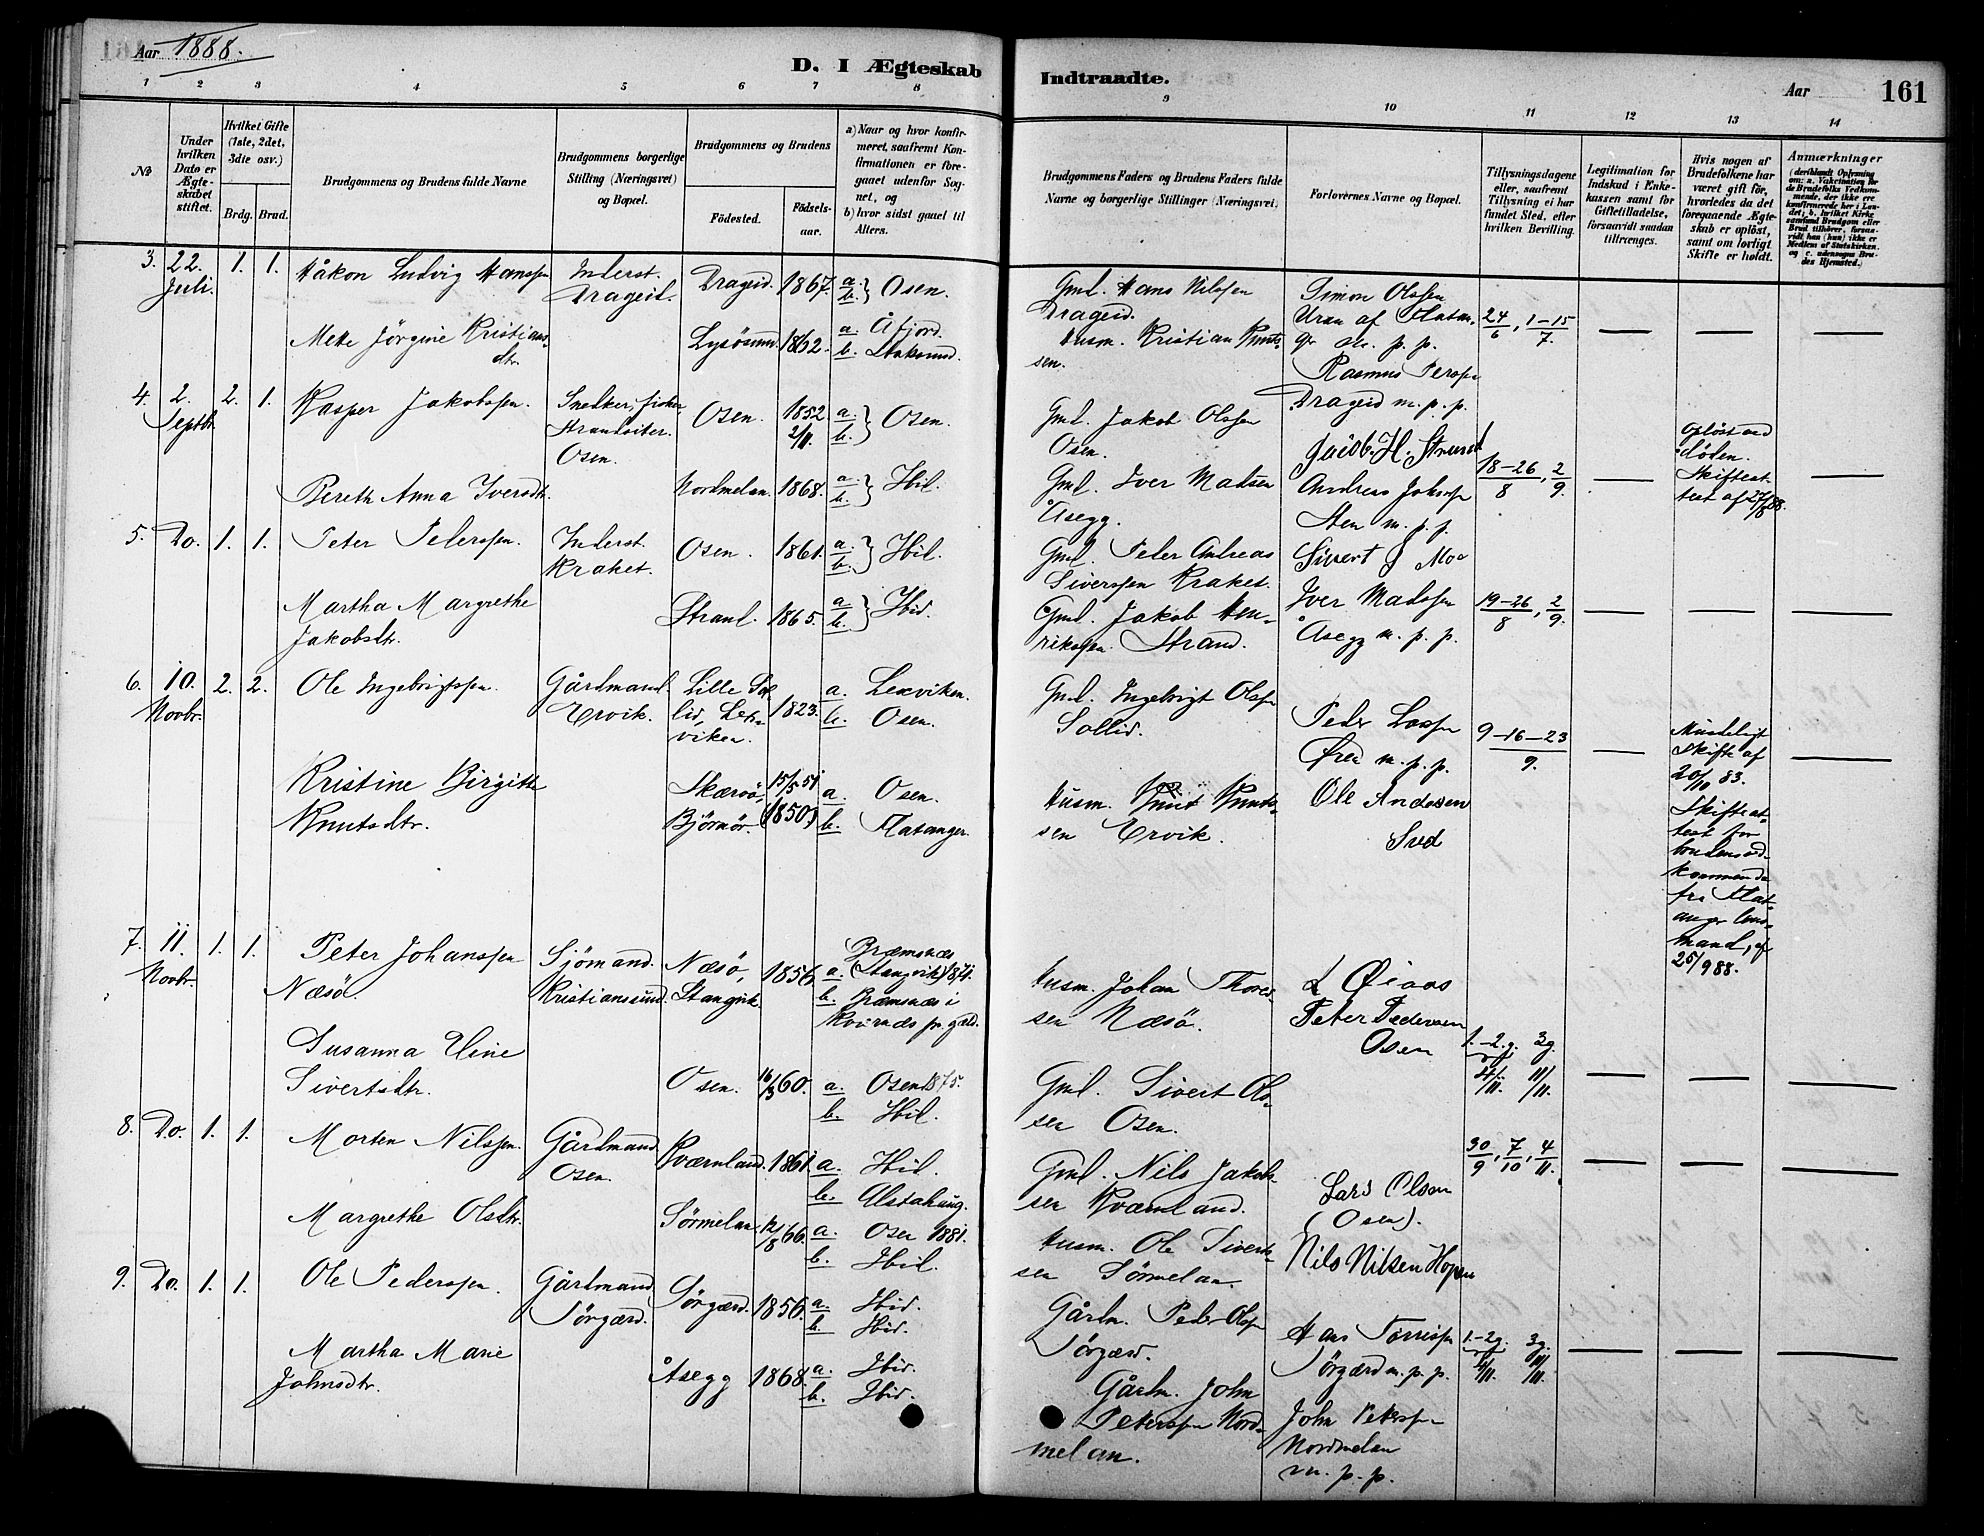 Aar 1888.
D. I Ægteskab Indtraadte.
Aar 161
1 2 3 4 5 6 7 8 9 10 11 12 13 14
No
Under hvilken Dato er Ægteskabet stiftet.
Hvilket Gifte (1ste, 2det, 3die osv.)
Brdg. Brud.
Brudgommens og Brudens fulde Navne
Brudgommens borgerlige Stilling (Næringsvei) og Bopæl.
Brudgommens og Brudens
Födested.
Födselsaar.
a) Naar og hvor konfirmeret, saafremt Konfirmationen er foregaaet udenfor Sognet, og
b) hvor sidst gaaet til Alters.
Brudgommens Faders og Brudens Faders fulde Navne og borgerlige Stillinger (Næringsvei)
Forlovernes Navne og Bopæl.
Tillysningsdagene eller, saafremt Tillysning ei har fundet Sted, efter hvilken Bevilling.
Legitimation for Indskud i Enkekassen samt for Giftetilladelse, forsaavidt saadan tiltrænges.
Hvis nogen af Brudefolkene har været gift för, hvorledes da det foregaaende Ægteskab er oplöst, samt om lovligt Skifte er holdt.
Anmærkninger
3. 22. Juli. 1. 1. Håkon Ludvig Hanssen Inderst. Drageid. Drageid. 1867. a. b. } Osen.
Gml. Hans Nilssen Drageid.
Simon Olssen
24/6, 1-15/7.
Mette Jörgine Kristiansdtr. Lysösund 1862. a. Åfjord. b. Stoksund.
Husm. Kristian Knutssen.
Rasmus Perssen
Drageid m. p. p.
4. 2. Septbr. 2. 1. Kasper Jakobssen. Snedker, fisker Strandsiter. Osen. Osen. 1852 2/11. a. b. } Osen.
Gml. Jakob Olssen Osen.
Jacob. H. Strand
18-26/8, 2/9.
Oplöst ved döden. Skifteattest af 27/8 88.
Bereth Anna Iversdtr. Nordmelan. 1868. a. b. } Ibid.
Gml. Iver Madsen Åsegg.
Andreas Johnsen Sten m. p. p.
5. Do. 1. 1. Peter Peterssen. Inderst. Kraket. Osen. 1861. a. b. } Ibid.
Gml. Peter Andreas Siverssen Kraket.
Sivert J Moe
19-26/8, 2/9.
Martha Margrethe Jakobsdtr. Strand. 1865. a. b. } Ibid.
Gml. Jakob Henrikssen Strand.
Iver Madssen Åsegg m. p. p.
6. 10. Novbr. 2. 2. Ole Ingebrigtssen. Gårdmand. Ervik. Lille Sollid, Leksviken. 1823. a. Lexviken. b. Osen.
Gml. Ingebrigt Olssen Sollid.
Peder Larssen Øren m. p. p.
9-16-23/9.
Mindeligt Skifte af 20/10 83.
Kristine Birgitte Knutsdtr. Skjærvö, Björnör. 15/5 51 (1850) a. Osen. b. Flatanger.
Husm. Knut Knutssen Ervik.
Ole Andersen Sved
Skifteattest for brudens vedkommende fra Flatanger lensmand, af 25/9 88.
7. 11. Novbr. 1. 1. Peter Johanssen Næsö. Sjömand. Kristianssund. Næsö, Stangvik. 1856. a. Bræmsnæs (Stangvik) 1871. b. Bræmsnæs i Kværnæs pr.gæld.
Husm. Johan Thoressen Næsö.
L Øiaas
Peter Pedersen Osen
1.-2.g. 4/11. 3g. 11/11.
Susanna Eline Sivertsdtr. Osen. 16/3 60. a. Osen 1875. b. Ibid.
Gml. Sivert Olssen Osen.
8. Do. 1. 1. Morten Nilssen. Gårdmand Osen. Kværnland. 1861. a. Ibid. b. Alstahaug.
Gml. Nils Jakobssen Kværnland.
Lars Olsen (Osen).
30/9, 7/10, 4/11.
Margrethe Olsdtr. Sörmelan 12/8 66. a. Osen 1881. b. Ibid.
Husm. Ole Sivertssen Sörmelan.
Nils Nilsen Hopen
9. Do. 1. 1. Ole Pederssen. Gårdmand Sörgærd. Sörgærd. 1856. a. Ibid. b. Ibid.
Gårdm. Peder Olssen Sörgærd.
Hans Torrissen Sörgærd m. p. p.
1.-2g. 4/11. 3g. 11/11.
Martha Marie Johnsdtr. Åsegg 1868. a. Ibid. b. Ibid.
Gårdm. John Peterssen Nordmelan.
John Peterssen Nordmelan m. p. p.